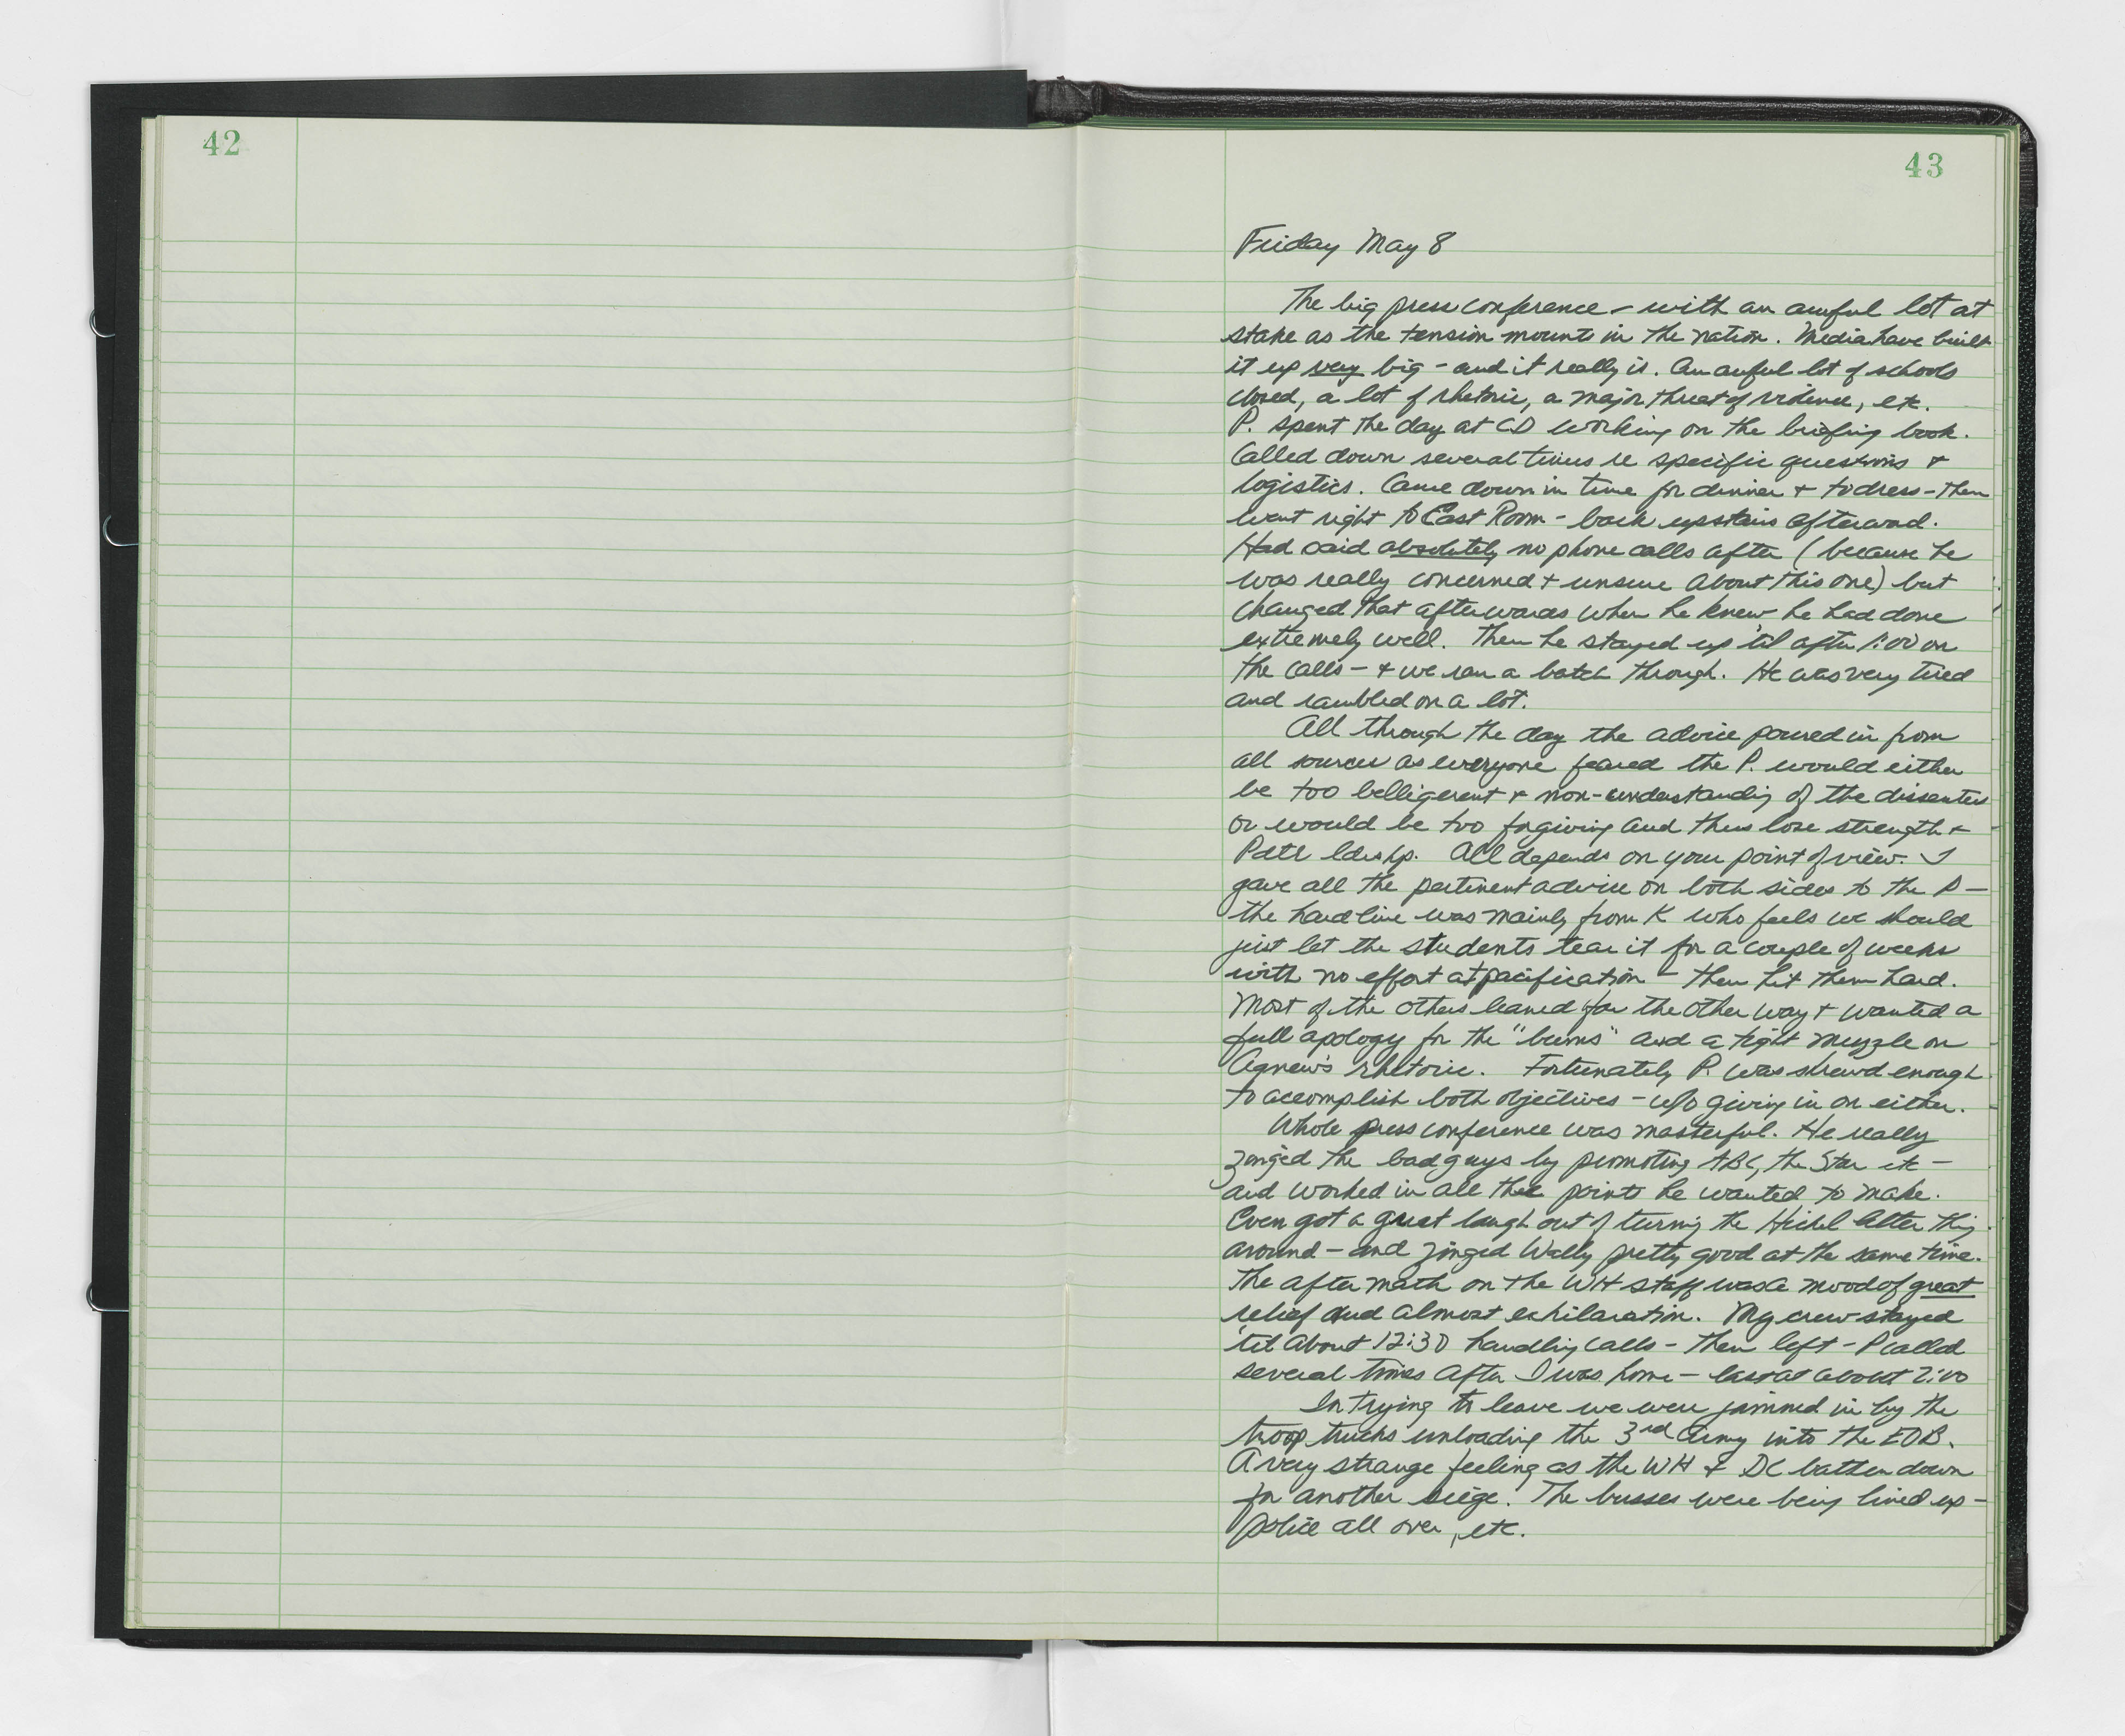 42
43
Friday May 8
The big press conference - with an awful lot at
stake as the tension mounts in the nation. Media have built
it up very big - and it really is. An awful lot of schools
closed, a lot of rhetoric, a major threat of violence, etc.
P. spent the day at CD working on the briefing book.
Called down several times re specific questions +
logistics. Came down in time for dinner + to dress - then
went right to East Room - back upstairs afterward.
Had said absolutely no phone calls after (because he
was really concerned + unsure about this one) but
changed that afterwards when he knew he had done
extremely well. Then he stayed up 'til after 1:00 on
the calls - + we ran a batch through. He was very tired
and rambled on a lot.
All through the day the advice poured in from
all sources as everyone feared the P. would either
be too belligerent + non-understanding of the dissenters
or would be too forgiving and thus lose strength +
Patl ldershp. All depends on your point of view. I
gave all the pertinent advice on both sides to the P -
the hard line was mainly from K who feels we should
just let the students tear it for a couple of weeks
with no effort at pacification - then hit them hard.
Most of the others leaned far the other way + wanted a
full apology for the "bums" and a tight muzzle on
Agnew's rhetoric. Fortunately P. was shrewd enough
to accomplish both objectives - w/o giving in on either.
Whole press conference was masterful. He really
zinged the bad guys by promoting ABC, the Star etc -
and worked in all the points he wanted to make.
Even got a great laugh out of turning the Hickel letter thing
around - and zinged Wally pretty good at the same time.
The aftermath on the WH staff was a mood of great
relief and almost exhilaration. My crew stayed
'til about 12:30 handling calls - then left - P called
several times after I was home - last at about 2:00
In trying to leave we were jammed in by the
troop trucks unloading the 3rd Army into the EOB.
A very strange feeling as the WH + DC batten down
for another siege. The busses were being lined up -
police all over, etc.